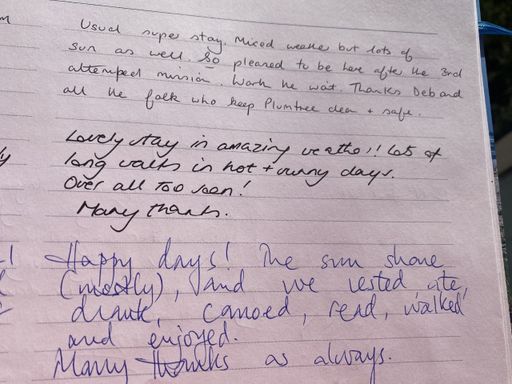 m
Usual super stay. Mixed weather but lots of
sun as well. So pleased to be here after the 3rd
attempted mission. Worth the wait. Thanks Deb and
all the folk who keep Plumtree clean + safe.
Lovely stay in amazing weather!! Lots of
long walks in hot + sunny days.
Over all too soon!
Many thanks.
Happy days! The sun shone
(mostly), and we rested, ate,
drank, canoed, read, walked
and enjoyed.
Many thanks as always.